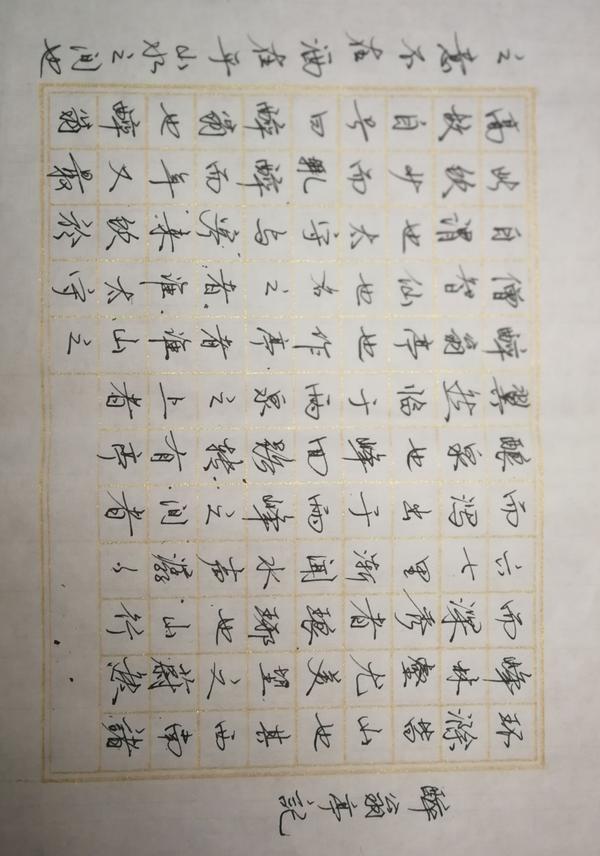 醉翁亭記
环滁皆山也其西南諸
峰林壑尤美望之蔚然
而深秀者琅琊也山行
六七里漸闻水声潺〻
而泻出于两峰之间者
酿泉也峰回路转有亭
翼然临于两泉之上者
醉翁亭也作亭者谁山之
僧智仙也名之者谁太守
自谓也太守与客来饮於
此饮少而輒醉而年又最
高故自号曰醉翁也醉翁
之意不在酒在乎山水之间也